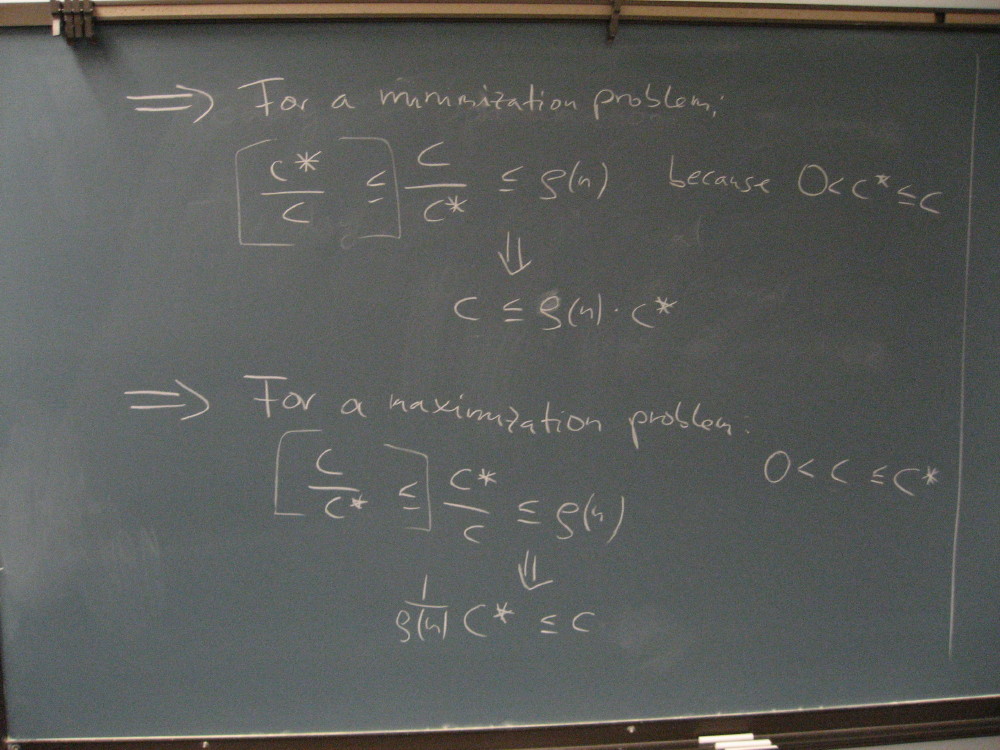 ⇒ For a minimization problem:
[C*/C ≤] C/C* ≤ ρ(n) because 0 < C* ≤ C
⇓
C ≤ ρ(n) · C*
⇒ For a maximization problem:
[C/C* ≤] C*/C ≤ ρ(n) 0 < C ≤ C*
⇓
1/ρ(n) C* ≤ C